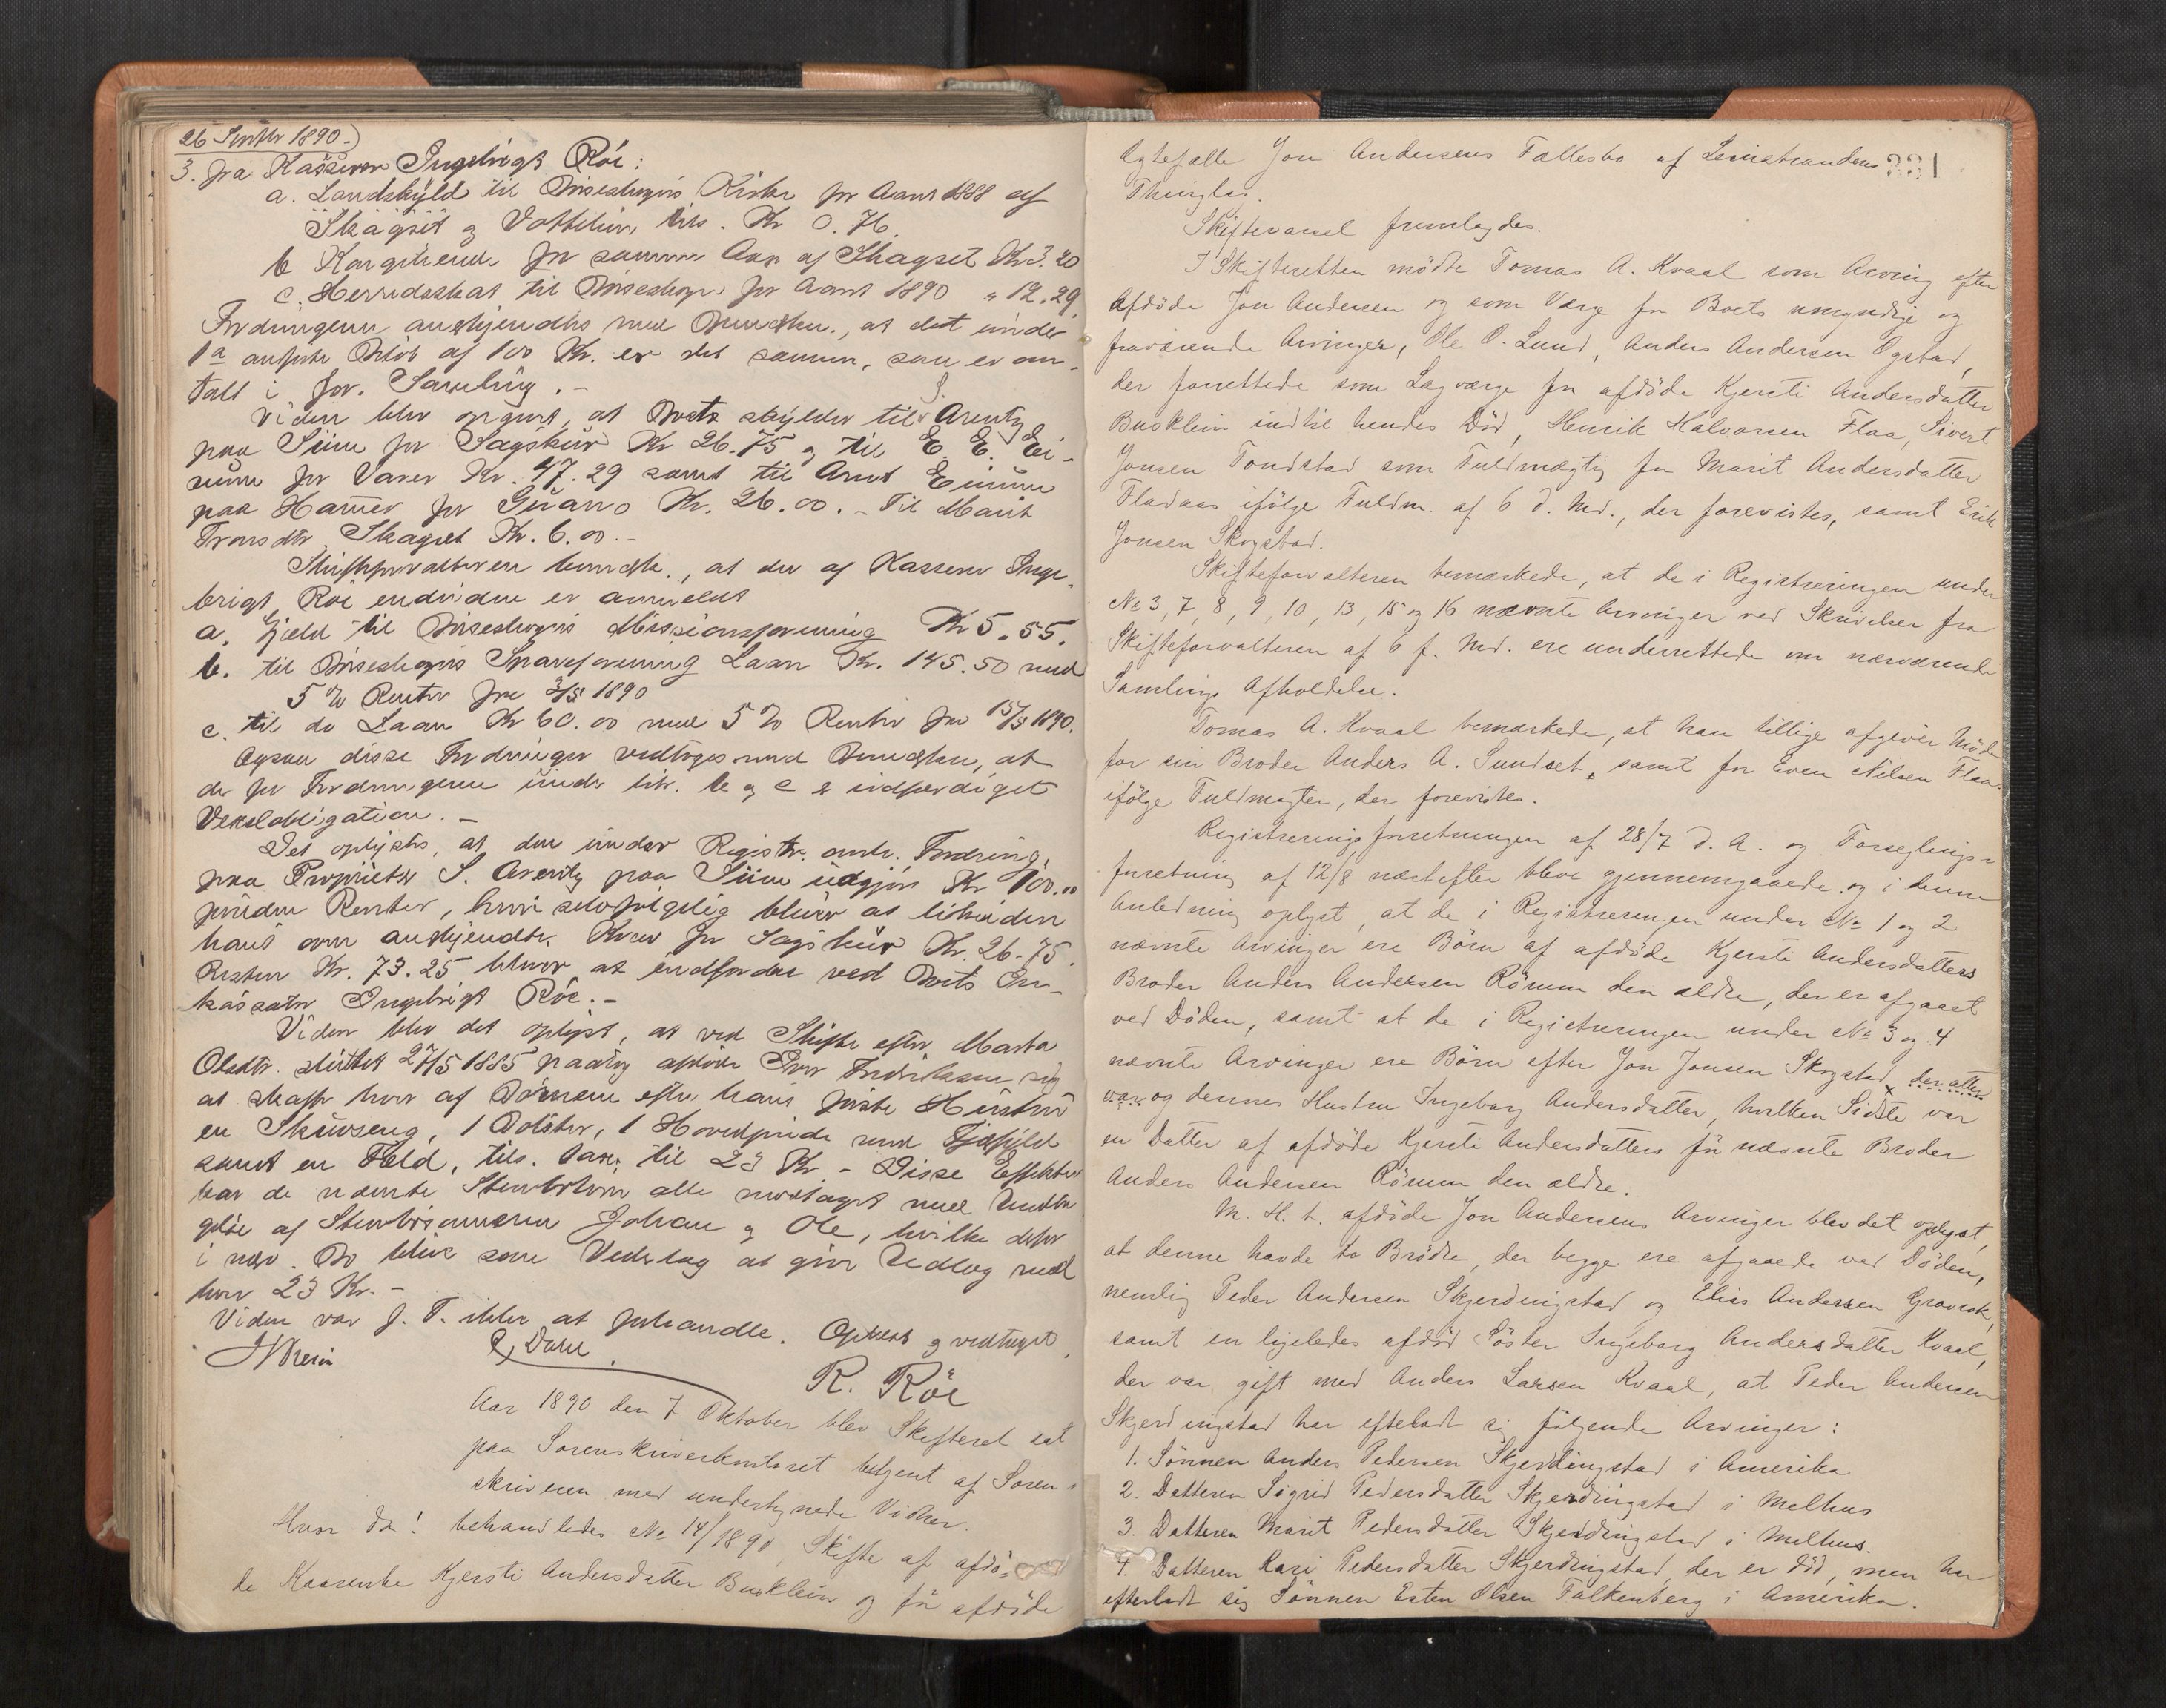 26 Septbr 1890.)
3. fra Kasserer Ingebrigt Röe:
a. Landskyld til Kirke for Aaret 1888 af
Skagset og tils. Kr 0.76.
b Korgetiende for samme Aar af Skagset Kr 3.20
c. Herredsskat til for Aaret 1890 " 12.29
Fordringerne anerkjendtes med Bemærkn., at det under
1a anførte Beløb af 100 Kr. er det samme, som er om-
talt i for. Samling. -
Viden blev opgivet, at Boet skylder til S. Arentz
paa Siim for Sagskur Kr 26.75 og til E. E. Ei-
mm for Varer Kr. 47.29 samt til Arnt Eimm
paa Hammer for Guano Kr. 26.00. - Til Marit
Tronsdtr. Skagset Kr. 6.00. -
Skifteforvalteren bemærkede, at der af Kasserer Inge-
brigt Röe endvidere er anmeldt
a. Gjeld til Missionsforening Kr 5.55.
b. til Spareforening Laan Kr. 145.50 med
5 % Renter fra 1890
c. til do Laan Kr 60.00 med 5 % Renter fra 15/3 1890.
Ogsaa disse Fordringer vedtoges med Bemærkn, at
der for Fordringerne under litr. b og c er udfærdiget
Vexelobligation. -
Det oplystes, at den under Registr. omh. Fordring
paa Proprietær S. Arentz paa Siim udgjör Kr 100.00
foruden Renter, hvori selvfølgelig bliver at likvidere
hans oven anerkjendte Krav for Sagskur Kr. 26.75.
Resten Kr. 73.25 bliver at indfordre ved Boets In-
kassator Ingebrigt Röe. -
Viden blev det oplyst, at ved Skifte efter Marta
Olsdtr. sluttet 27/5 1885 paatog afdöde sig
at skaffe hver af Börnene efter hans første Hustru
en Skuvseng, 1 Bolster, 1 Hovedpude med
samt en Fæld, tils. tax. til 23 Kr - Disse Effekter
har de nævnte Stervbörn alle modtaget med Undta-
gelse af Stervbösønnerne Johan og Ole, hvilke derfor
i nær. Bo blive som Vederlag at give Udlæg med
hver 23 Kr. -
Viden var f. T. ikke at forhandle. Oplæst og vedtaget.
R. Röe
Aar 1890 den 7 Oktober blev Skifteret sat
paa Sorenskriverkontoret betjent af Soren-
skriveren med undertegnede Vidner.
Hvor da! behandledes No 14/1890, Skifte af afdö-
de Kaarenke Kjersti Andersdatter Busklein og för afdöde
331
Ægtefælle Jon Andersens Fællesbo af Leinstrandens
Thinglag.
Skiftevarsel fremlagdes.
I Skifteretten mödte Tomas A. Kvaal som Arving efter
Afdöde Jon Andersen og som Værge for Boets umyndige og
fraværende Arvinger, Ole O. Lund, Anders Andersen Øgstad,
der forrettede som Lagværge for afdöde Kjersti Andersdatter
Busklein indtil hendes Död, Henrik Halvorsen Flaa, Sivert
Jonsen Tondstad som Fuldmægtig for Marit Andersdatter
Fladaas ifölge Fuldm. af 6 d. Md., der forevistes, samt Erik
Jonsen Skogstad.
Skifteforvalteren bemærkede, at de i Registreringen under
No 3, 7, 8, 9, 10, 13, 15 og 16 nævnte Arvinger ved Skrivelser fra
Skifteforvalteren af 6 f. Md. ere underrettede om nærværende
Samlings Afholdelse.
Tomas A. Kvaal bemærkede, at han tillige afgiver Möde
for sin Broder Anders A. Sundset, samt for Even Nilsen Flaa
ifölge Fuldmagter, der forevistes.
Registreringsforretningen af 28/7 d. A. og Forseglings-
forretning af 12/8 næstefter bleve gjennemgaaede og i denne
Anledning oplyst, at de i Registreringen under No 1 og 2
nævnte Arvinger ere Börn af afdöde Kjersti Andersdatters
Broder Anders Andersen Römm den ældre, der er afgaaet
ved Döden, samt at de i Registreringen under No 3 og 4
nævnte Arvinger ere Börn efter Jon Jonsen Skogstad, der atter
var og dennes Hustru Ingeborg Andersdatter, hvilken Sidste var
en Datter af afdöde Kjersti Andersdatters för nævnte Broder
Anders Andersen Römm den ældre.
M. H. t. afdöde Jon Andersens Arvinger blev det oplyst,
at denne havde to Brödre, der begge ere afgaaede ved Döden,
nemlig Peder Andersen Skjerdingstad og Elias Andersen Gravrak,
samt en ligeledes afdöd Söster Ingeborg Andersdatter Kvaal,
der var gift med Anders Larsen Kvaal, at Peder Andersen
Skjerdingstad har efterladt sig fölgende Arvinger:
1. Sönnen Anders Pedersen Skjerdingstad i Amerika
2. Datteren Sigrid Pedersdatter Skjerdingstad i Melhus
3. Datteren Marit Pedersdatter Skjerdingstad i Melhus.
4. Datteren Kari Pedersdatter Skjerdingstad, der er död, men har
efterladt sig Sönnen Esten Olsen Falkenberg i Amerika.